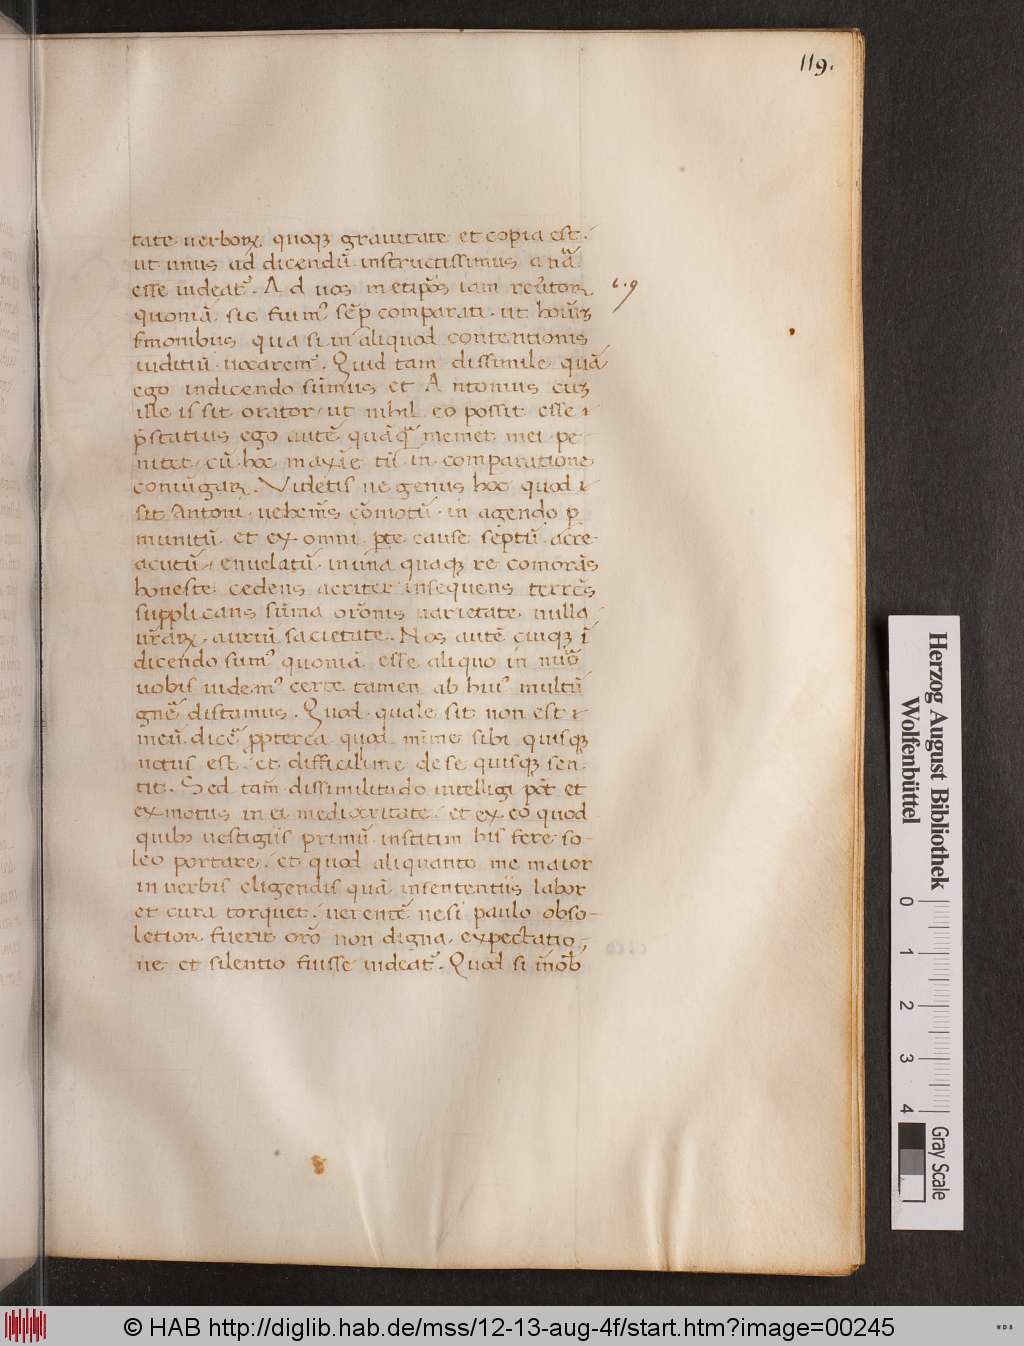 119.
tate uerborꝝ. quoqꝫ grauitate et copia est.
ut unus ad dicendū instructissimus a nā
esse uideat᷑. Ad uos met ipōs iam reũtor
c. 9
quoniā sic fuim᷒ sēp comparati ut hoīuꝫ
sermonibus qua si in aliquod contentionis
iuditiū uocarem᷒. Quid tam dissimile quā
ego in dicendo sūmus et Antonius cuꝫ
ille is sit orator ut nihil eo possit esse
p̄statius ego autē quāqꝫ memet mei pe
nitet cū hoc maxīe tn̄ in comparatione
coniūgar. Videtis ne genus hoc quod
sit Antoni uehem̄s cōmotū in agendo p̱
munitū et ex omni p̱te cause septū acre
acutū enucleatū in una quaqꝫ re comorās
honeste cedens acriter insequens terrēs
supplicans sūma orōnis uarietate nulla
ur̄arꝝ auriū sacietate. Nos autē quiqꝫ ī
dicendo sum᷒ quoniā esse aliquo in nūo
uobis uidem᷒ certe tamen ab hui᷒ multū
gn̄e distamus. Quod quale sit non est
meū dicē p̱pterea quod mīme sibi quisqꝫ
notus est et difficilime de se quisqꝫ sen
tit. Sed tam̄ dissimilitudo intelligi pōt et
ex motus in ei mediocritate et ex eo quod
quibꝫ uestigiis primū institim his fere so-
leo portare. et quod aliquanto me maior
in uerbis eligendis quā in sententiis labor
et cura torquet. uerentē ne si paulo obso-
letior fuerit orō non digna expectatio-
ne et silentio fuisse uideat᷑. Quod si in nōb̄
Herzog August Bibliothek
Wolfenbüttel
0
1
2
3
4
Gray Scale
© HAB http://diglib.hab.de/mss/12-13-aug-4f/start.htm?image=00245